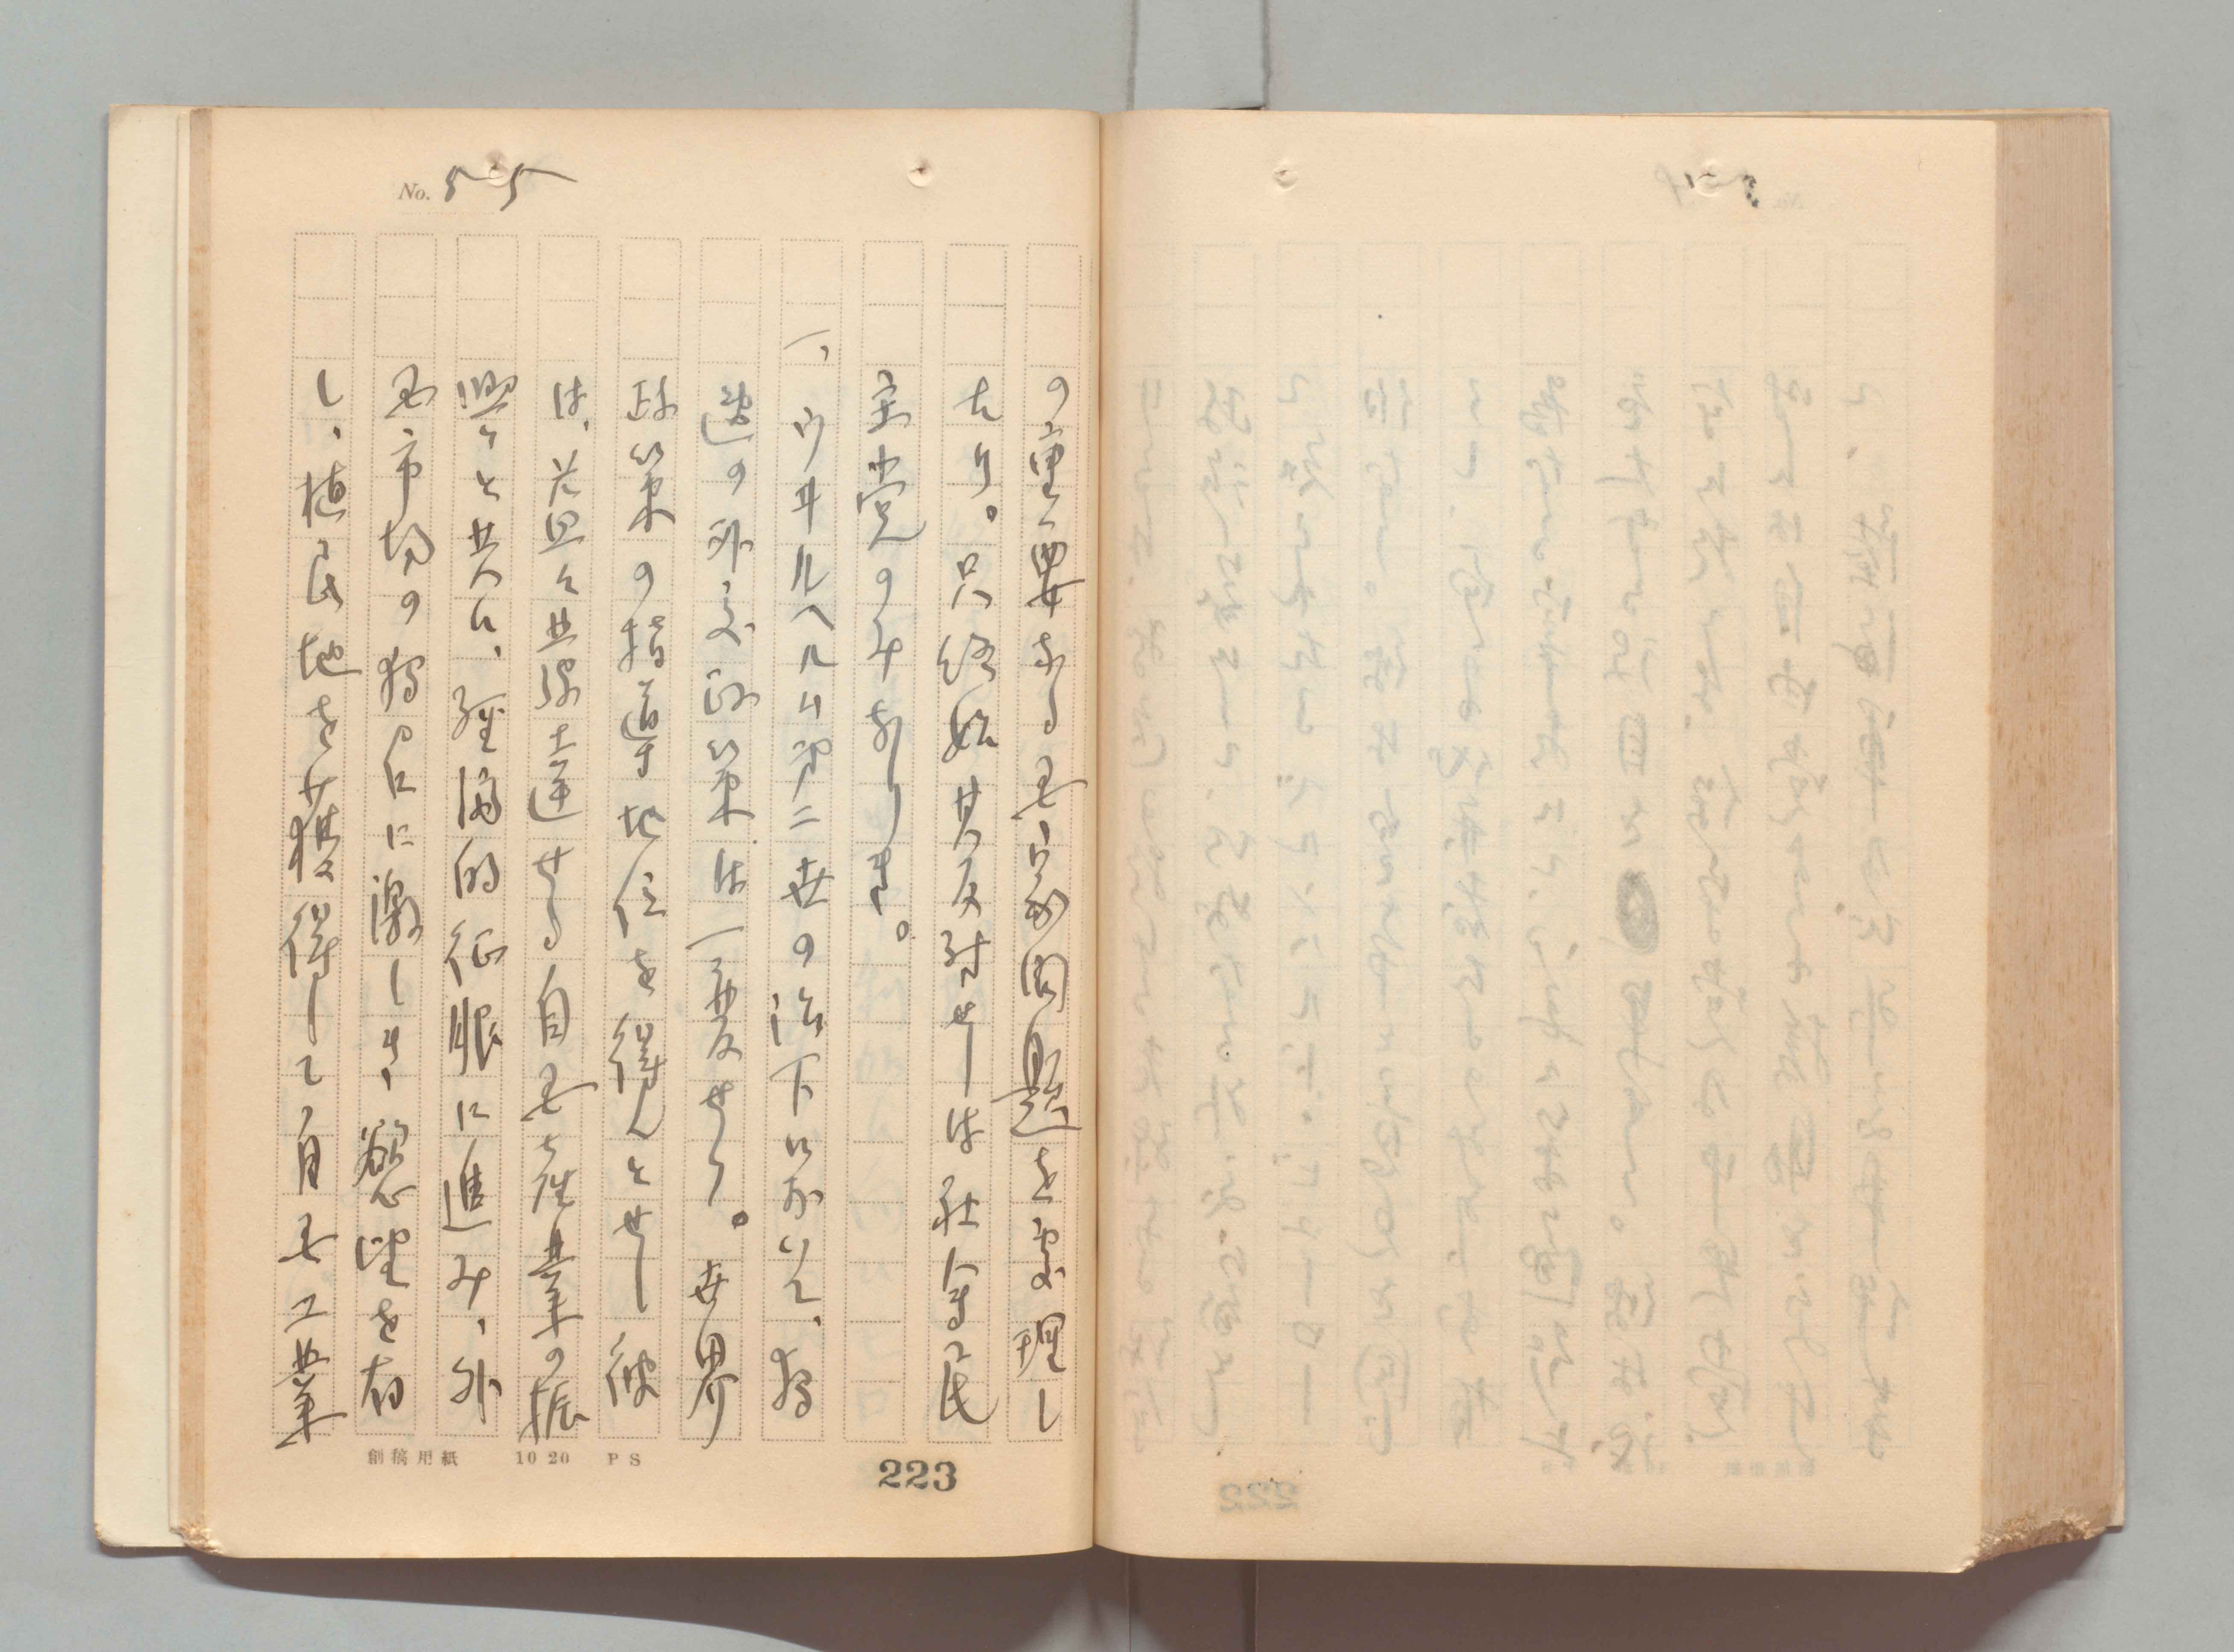 No. 55
の重要なる国家問題を処理し
たり。只終始其反対せしは社会民
主党のみなりき。
一、ウヰルヘルム第二世の治下に於いて、独
逸の外交政策は一変せり。世界
政策の指導地位を得んとせし彼
は、益々発達せる自国産業の振
興と共に、経済的征服に進み、外
国市場の獲得に激しき、慾望を有
し、植民地を獲得して、自国工業
創稿用紙 10 20 PS
223